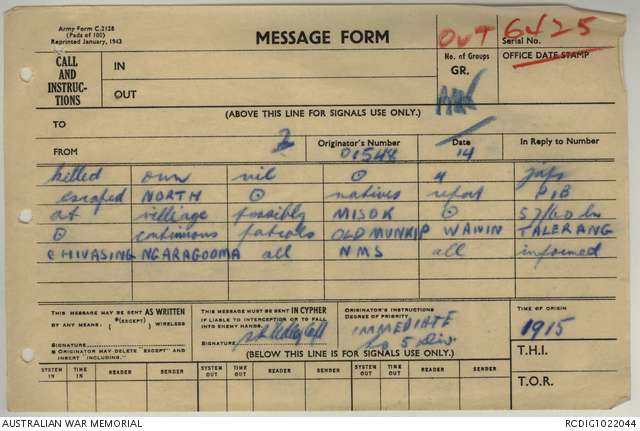 Army Form C.2128
(Pads of 100)
Reprinted January, 1943
MESSAGE FORM
OUT 6425
Serial No.
CALL AND INSTRUCTIONS
IN
No. of Groups
GR.
OFFICE DATE STAMP
OUT
(ABOVE THIS LINE FOR SIGNALS USE ONLY.)
TO
FROM
2
Originator's Number
O1548
Date
14
In Reply to Number
killed own nil ⊙ 4 japs
escaped NORTH ⊙ natives report PIB
at village possibly MISOK ⊙ 57/60 bn
⊙ continuous patrols OLD MUNKIP WANIN TALERANG
CHIVASING NGARAGOOMA all NMS all informed
THIS MESSAGE MAY BE SENT AS WRITTEN
BY ANY MEANS. (EXCEPT) WIRELESS
SIGNATURE
THIS MESSAGE MUST BE SENT IN CYPHER
IF LIABLE TO INTERCEPTION OR TO FALL
INTO ENEMY HANDS.
SIGNATURE
ORIGINATOR'S INSTRUCTIONS
DEGREE OF PRIORITY
IMMEDIATE
to 5 div
TIME OF ORIGIN
1915
* ORIGINATOR MAY DELETE "EXCEPT" AND
INSERT "INCLUDING."
(BELOW THIS LINE IS FOR SIGNALS USE ONLY.)
T.H.I.
SYSTEM IN TIME IN READER SENDER SYSTEM OUT TIME OUT READER SENDER SYSTEM OUT TIME OUT READER SENDER
T.O.R.
AUSTRALIAN WAR MEMORIAL
RCDIG1022044